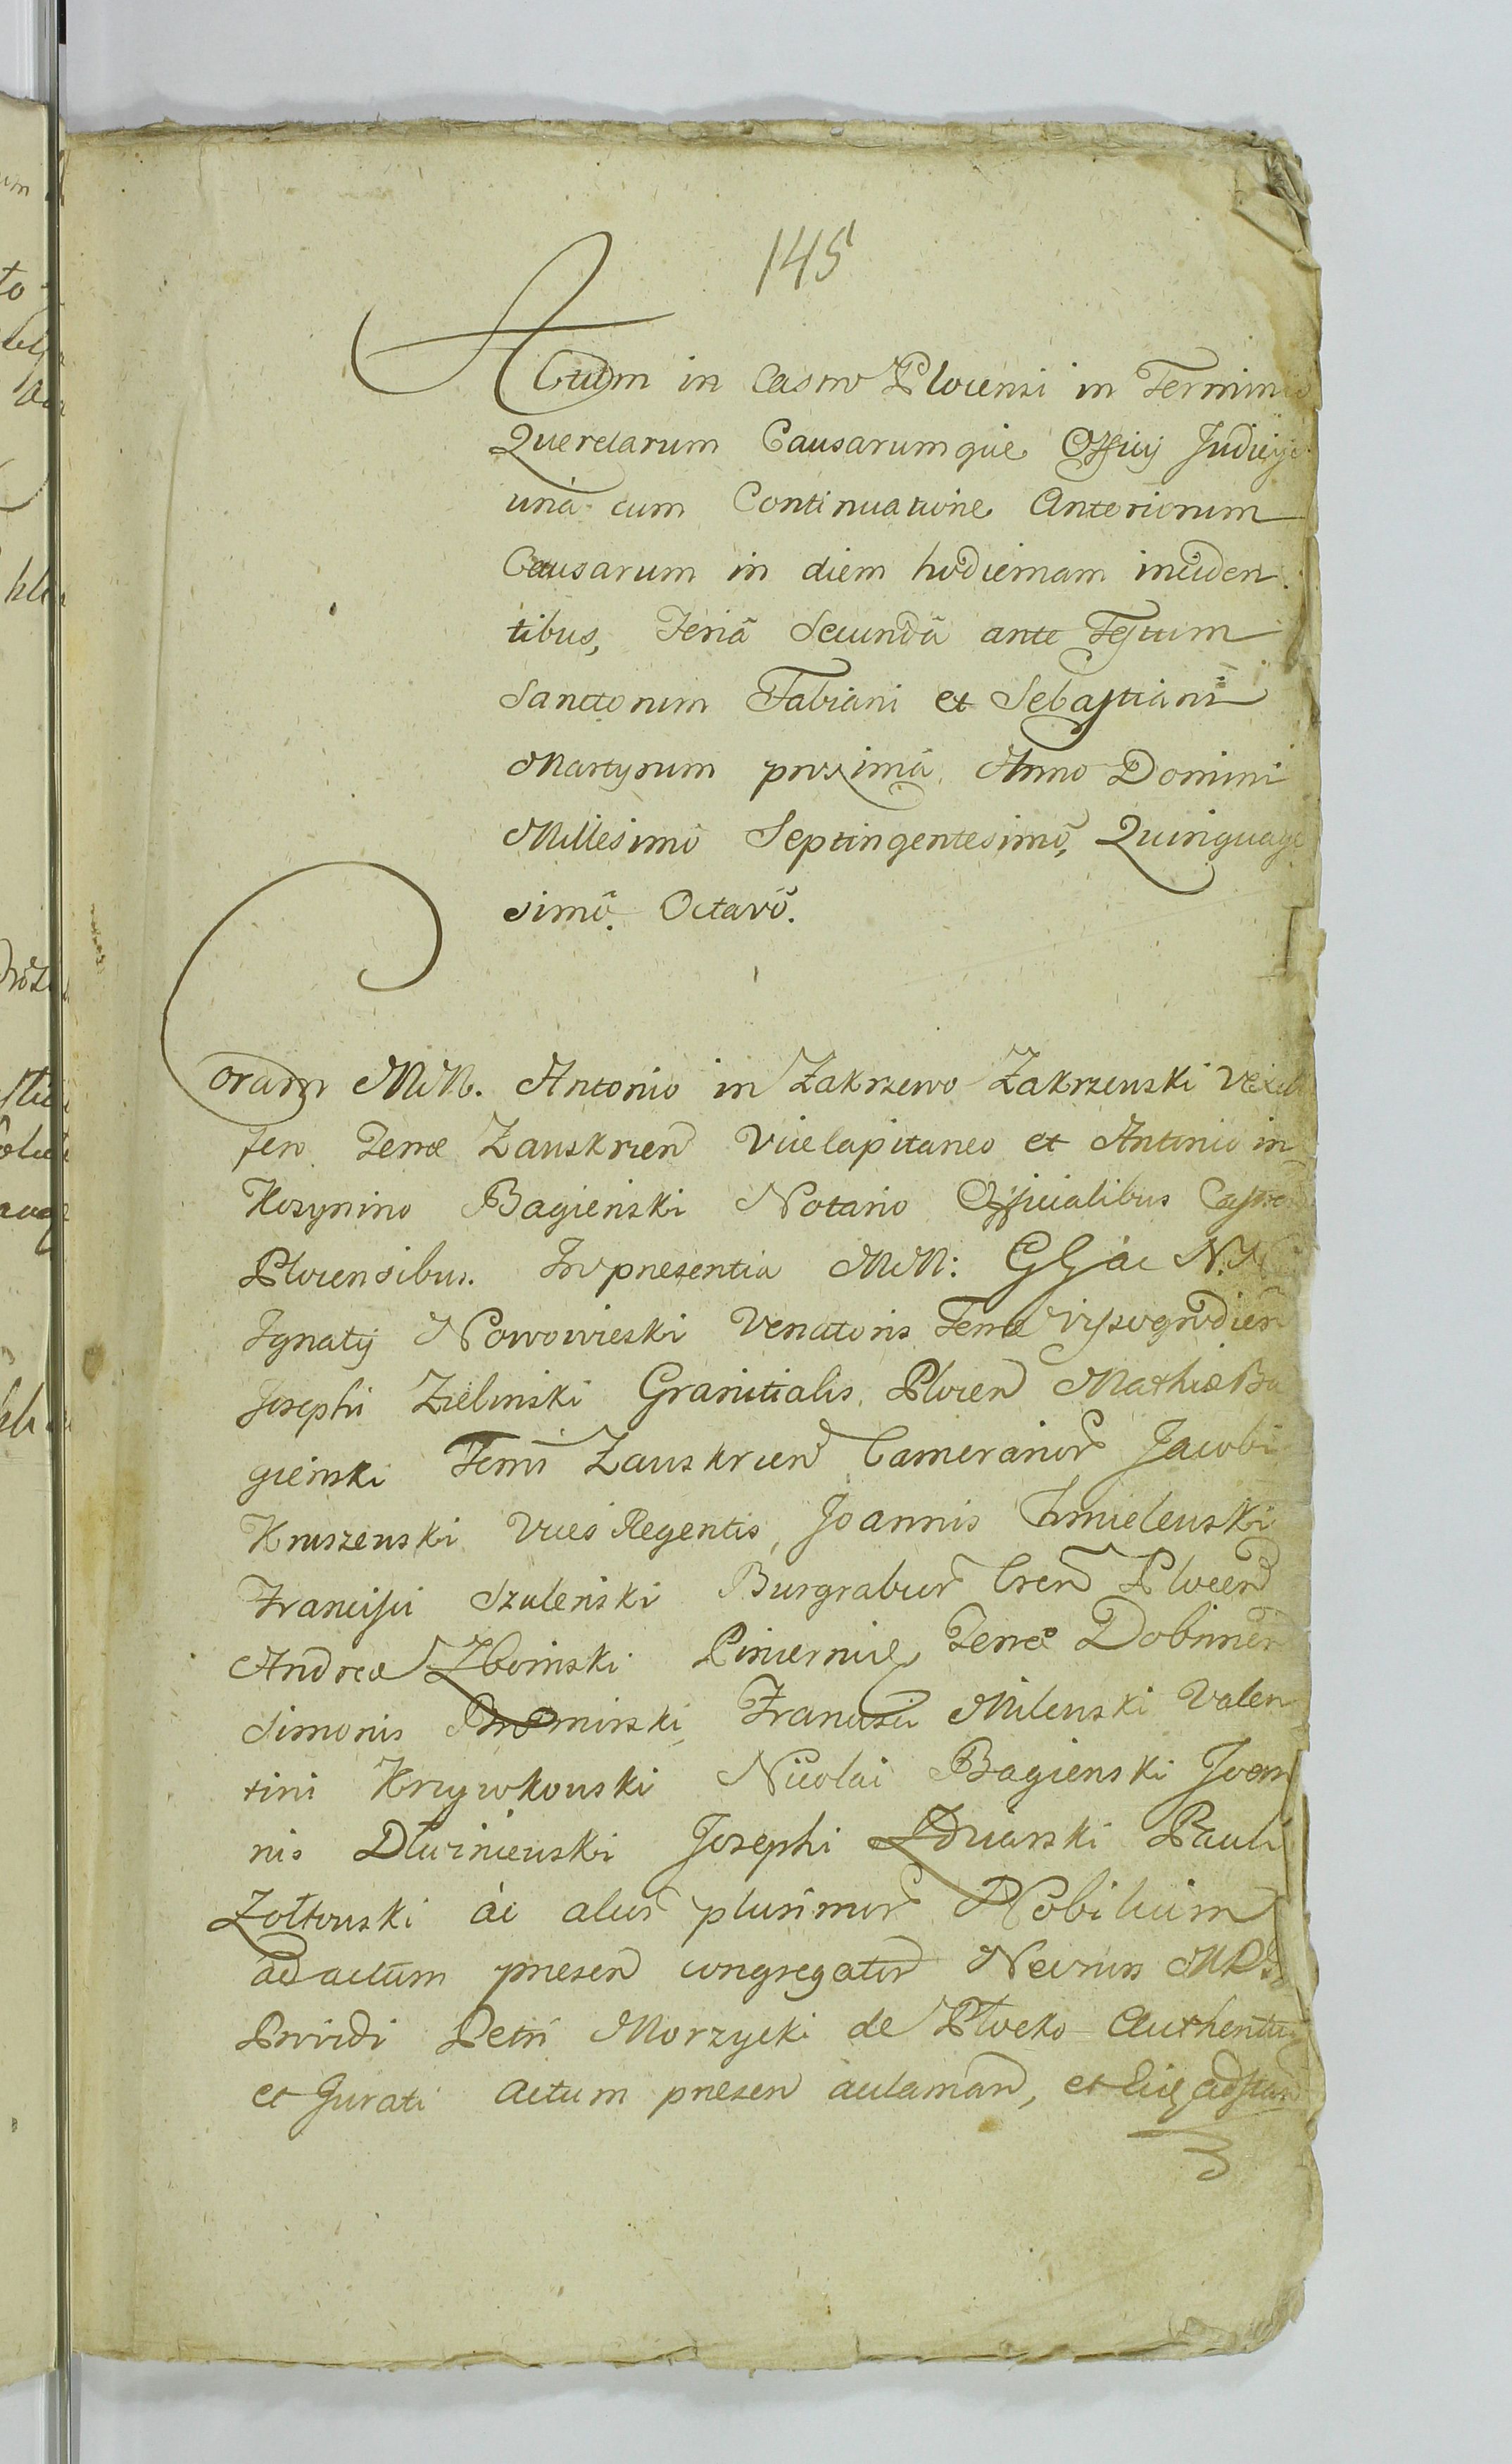 145
Actum in Castro Plocensi in Terminis
Querelarum Causarumque Officij Judicijq
unà cum Continuatione Anteriorum
Causarum in diem hodiernam inciden
tibus, Feriâ Secundâ ante Festum
Sanctorum Fabiani et Sebastiani
Martyrum proximâ Anno Domini
Millesimô Septingentesimô, Quinquage
simô. Octavô.
Coram MM. Antonio in Zakrzewo Zakrzewski Vexilli
fero Terræ Zauskrzen Vicecapitaneo et Antonio in
Kozynino Bagieński Notario Officialibus Castren
Plocensibus. In præsentia MM: GG ac N.N.
Ignatij Nowowieski Venatoris Terræ Vyszogrodien
Josephi Zieliński Granitialis Plocen Mathiæ Ba
gieński Terrꝰ Zauskrzen Camerarior Jacobi
Kruszewski Vices Regentis, Joannis Chmielewski
Francisci Szuleński Burgrabior Cren Plocen
Andreæ Zboinski Pincernæ Terræ Dobrinen
Simonis Promirski, Francisci Milewski Valen
tini Krzywkowski Nicolai Bagienski Joan
nis Dłuzniewski Josephi Zdziarski Pauli
Zołtowski ac alior plurimor Nobilium
ad actum præsen congregator Necnon
Providi Petri Morzycki de Płocko Authentici
et Jurati actum præsen aclaman, et adstan